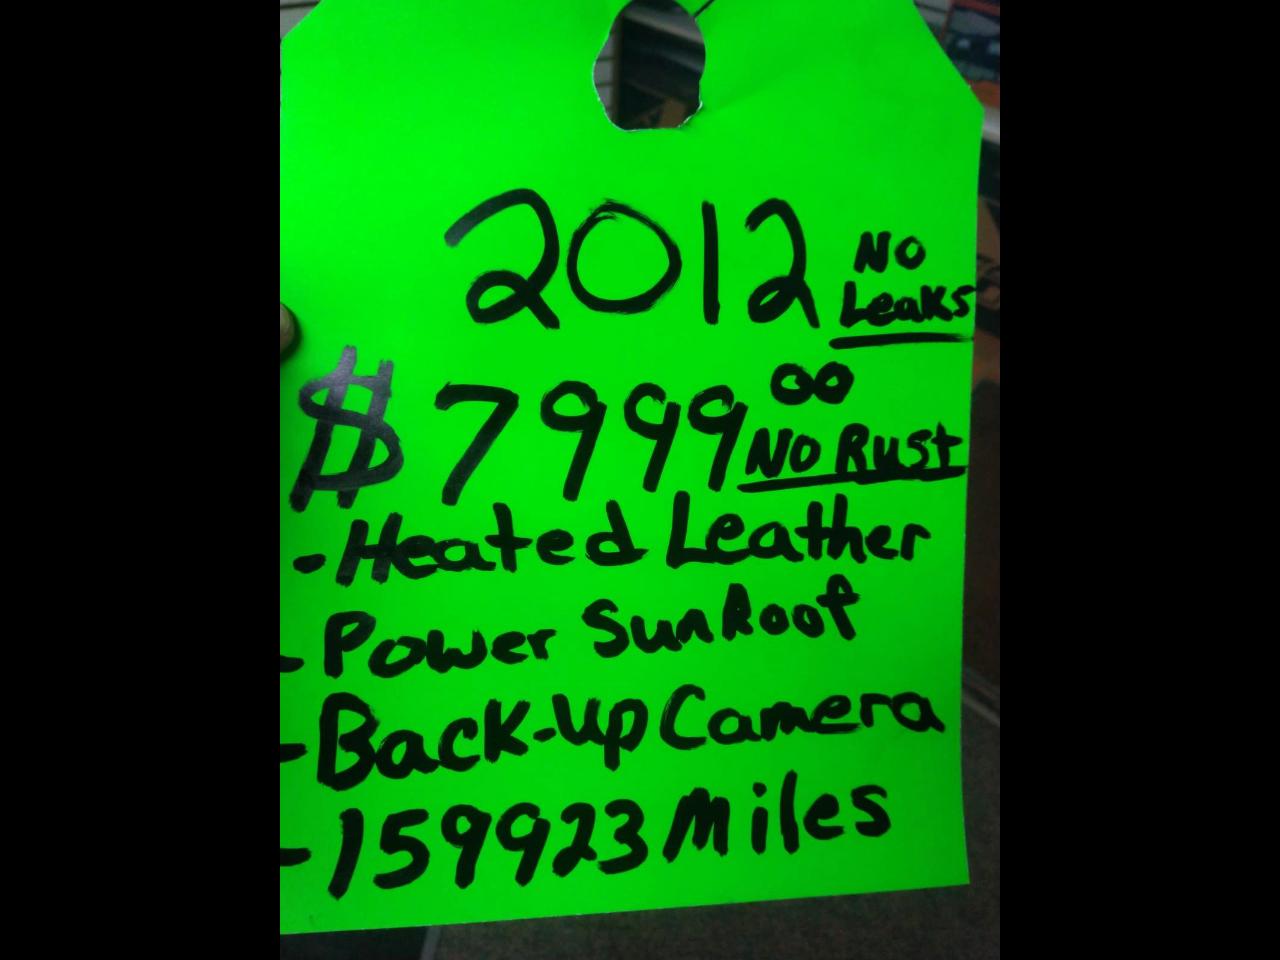 2012 No
Leaks
$7999 00
No Rust
-Heated Leather
-Power SunRoof
-Back-Up Camera
-159923 Miles